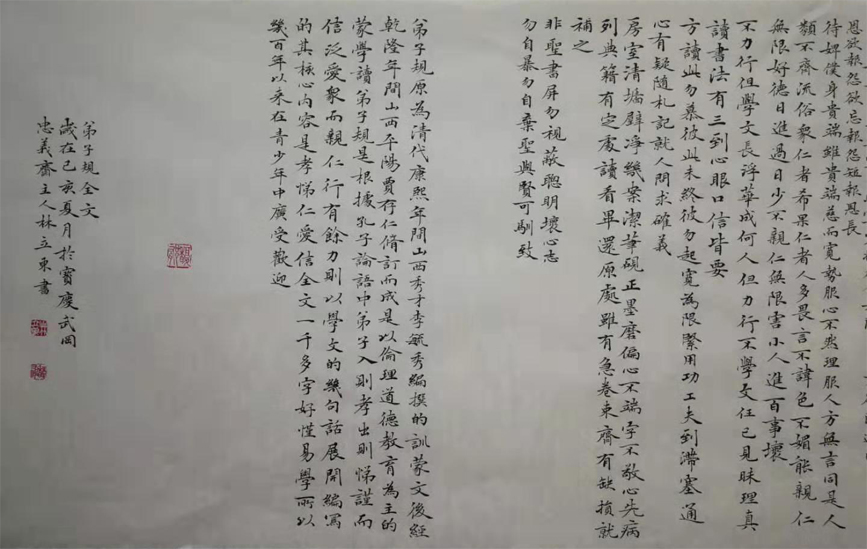 恩欲報怨欲忘報怨短報恩長
待婢僕身貴端雖貴端慈而寬勢服心不然理服人方無言同是人
類不齊流俗衆仁者希果仁者人多畏言不諱色不媚能親仁
無限好德日進過日少不親仁無限害小人進百事壞
不力行但學文長浮華成何人但力行不學文任己見昧理真
讀書法有三到心眼口信皆要
方讀此勿慕彼此未終彼勿起寬為限緊用功工夫到滯塞通
心有疑隨札記就人問求確義
房室清墻壁淨幾案潔筆硯正墨磨偏心不端字不敬心先病
列典籍有定處讀看畢還原處雖有急卷束齊有缺損就
補之
非聖書屏勿視蔽聰明壞心志
勿自暴勿自棄聖與賢可馴致
弟子規原為清代康熙年間山西秀才李毓秀編撰的訓蒙文後經
乾隆年間山西平陽賈存仁脩訂而成是以倫理道德教育為主的
蒙學讀弟子規是根據孔子論語中弟子入則孝出則悌謹而
信泛愛衆而親仁行有餘力則以學文的幾句話展開編寫
的其核心內容是孝悌仁愛信全文一千多字好懂易學所以
幾百年以來在青少年中廣受歡迎
弟子規全文
歲在己亥夏月於寶慶武岡
忠義齋主人林立東書